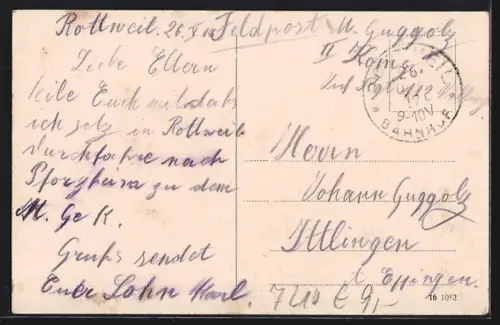 Rottweil. 26. X
Feldpost M. Guggolz
II Komp.
Inf Regt 112
26.
17
9-10V
BAHNHOF
Liebe Eltern
teile Euch mit daß
ich jetz in Rottweil
durchfahre nach
Pforzheim zu dem
M. Ge K.
Gruß sendet
Euer Sohn Karl.
Herrn
Johann Guggolz
Ittlingen
Eppingen.
7210 € 9,-
16 1092